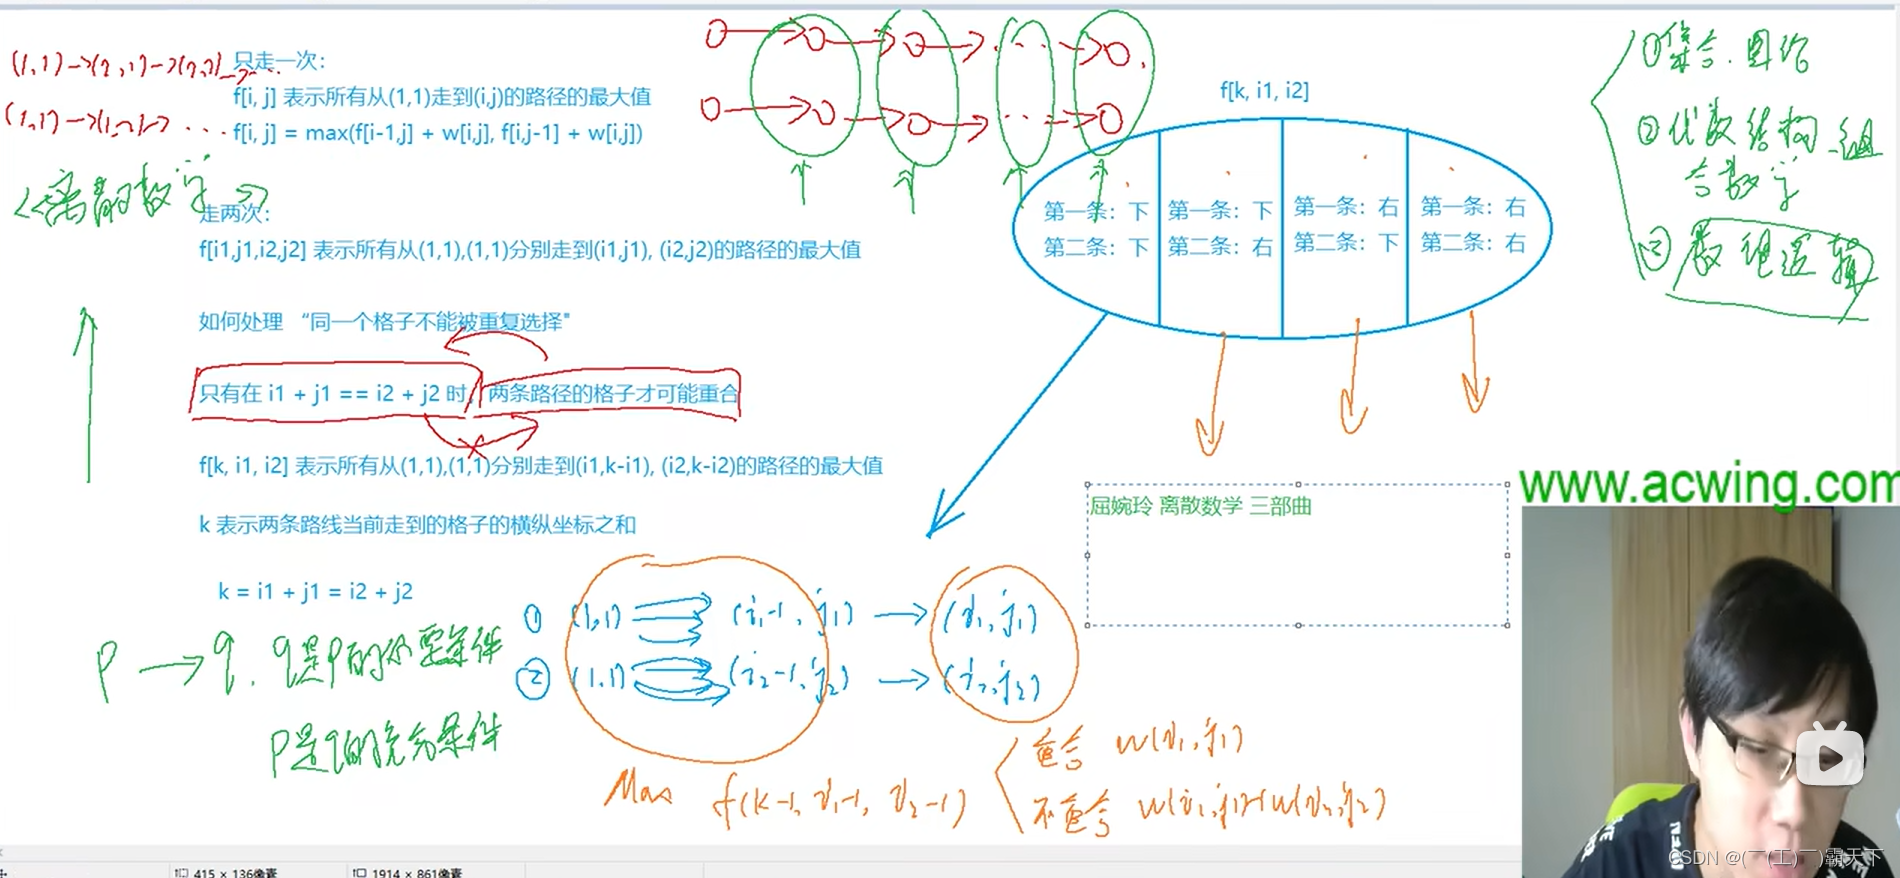 (1,1)→(2,1)→(2,2)→...
只走一次:
f[i, j] 表示所有从(1,1)走到(i,j)的路径的最大值
(1,1)→(1,2)→ ...
f[i, j] = max(f[i-1,j] + w[i,j], f[i,j-1] + w[i,j])
<<离散数学>>
走两次:
f[i1,j1,i2,j2] 表示所有从(1,1),(1,1)分别走到(i1,j1), (i2,j2)的路径的最大值
如何处理 “同一个格子不能被重复选择"
只有在 i1 + j1 == i2 + j2 时, 两条路径的格子才可能重合
f[k, i1, i2] 表示所有从(1,1),(1,1)分别走到(i1,k-i1), (i2,k-i2)的路径的最大值
k 表示两条路线当前走到的格子的横纵坐标之和
k = i1 + j1 = i2 + j2
P → q. q是p的必要条件
P是q的充分条件
① (1,1) (i₁-1, j₁) → (i₁, j₁)
② (1,1) (i₂-1, j₂) → (i₂, j₂)
Max f(k-1, i₁-1, i₂-1)
重合 w(i₁, j₁)
不重合 w(i₁, j₁)+w(i₂, j₂)
f[k, i1, i2]
第一条: 下
第二条: 下
第一条: 下
第二条: 右
第一条: 右
第二条: 下
第一条: 右
第二条: 右
①集合.图论
②代数结构 组
合数学
③数理逻辑
屈婉玲 离散数学 三部曲
www.acwing.com
415 × 136像素
1914 × 861像素
CSDN @(￣(工)￣)霸天下